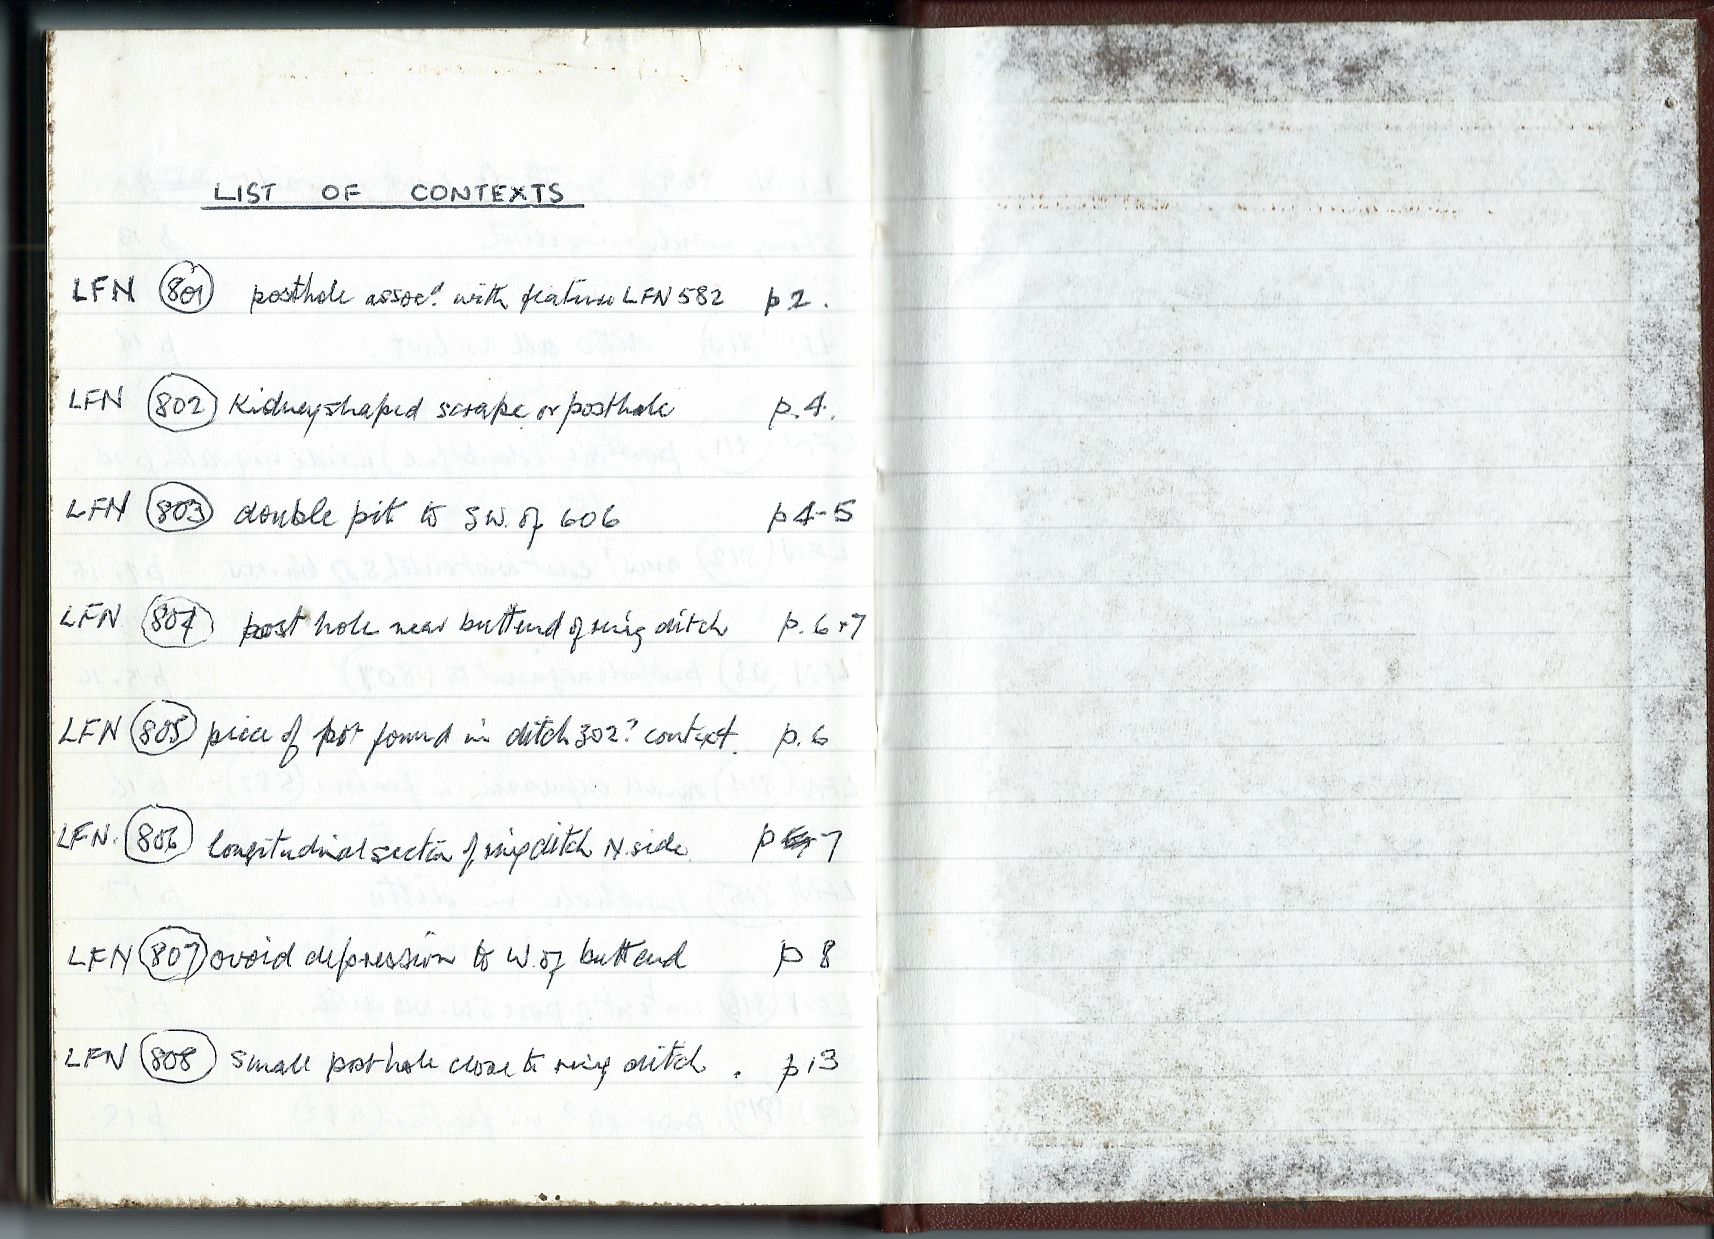 LIST OF CONTEXTS
LFN 801 posthole assocd. with feature LFN 582 p 2.
LFN 802 Kidneyshaped scrape or posthole p. 4.
LFN 803 double pit to SW. of 606 p 4-5
LFN 804 post hole near buttend of ring ditch p. 6+7
LFN 805 piece of pot found in ditch 302? context. p. 6
LFN. 806 longitudinal section of ring ditch N. side p 7
LFN 807 ovoid depression to W. of buttend p 8
LFN 808 small posthole close to ring ditch. p13